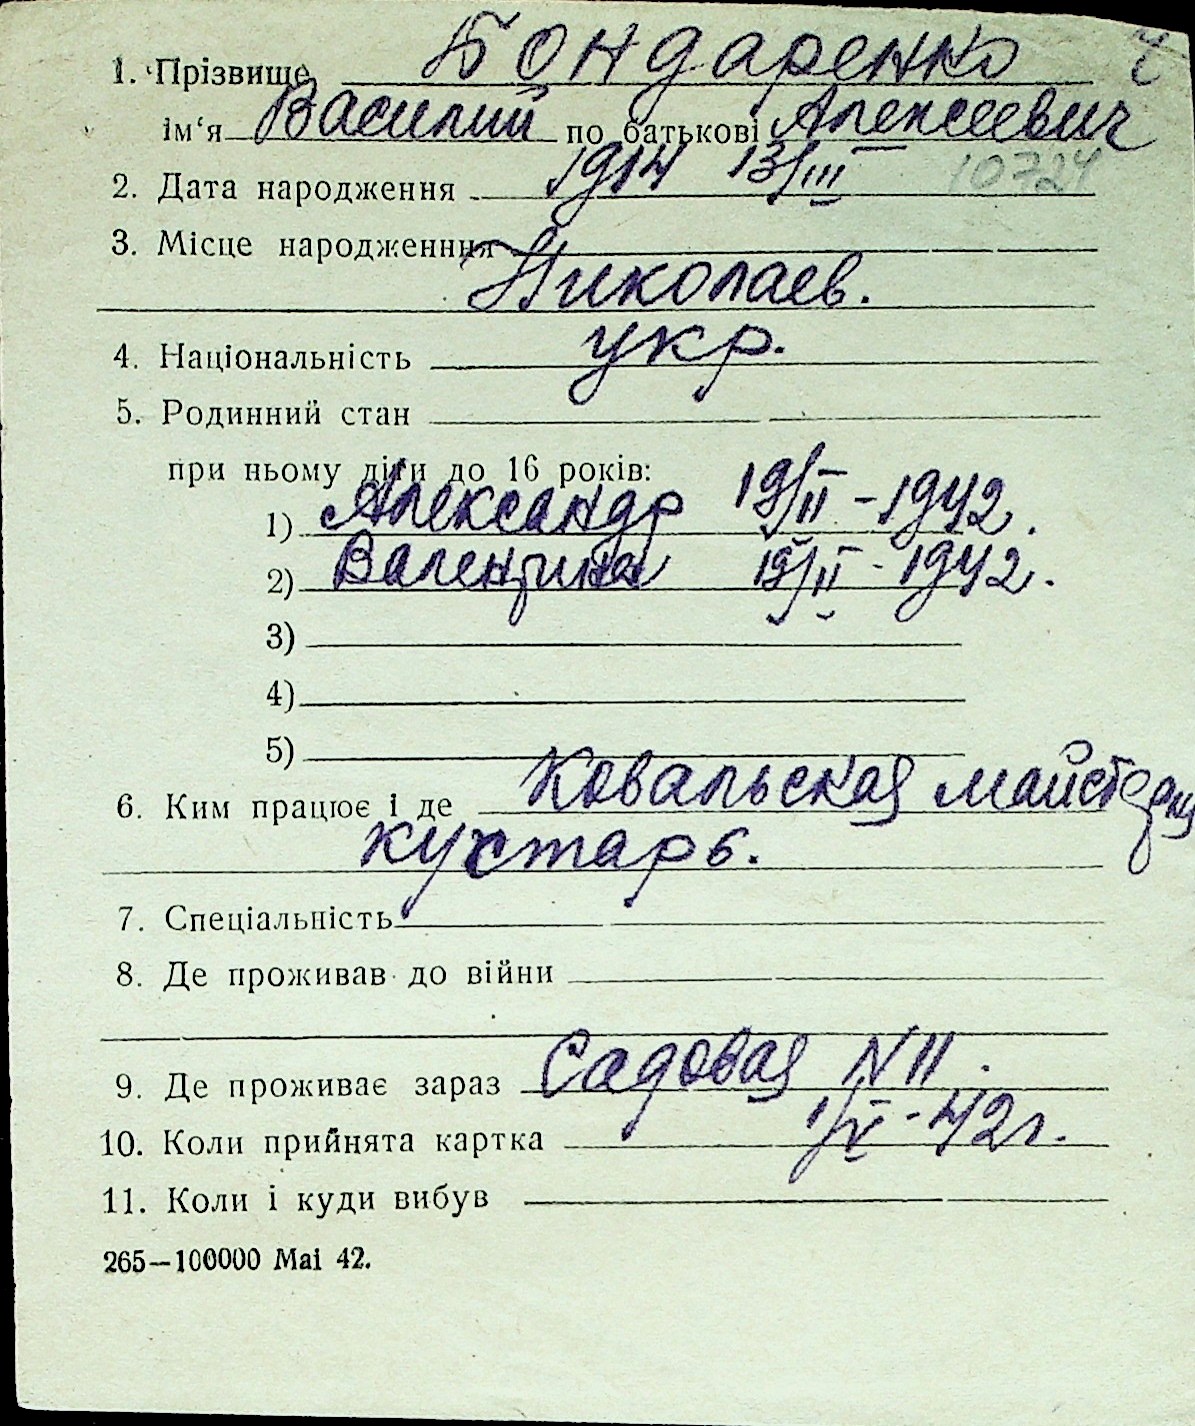 1. Прізвище Бондаренко
ім‘я Василий по батькові Алексеевич
2. Дата народження 1914 13/III 10724
3. Місце народженння
Николаев.
4. Національність укр.
5. Родинний стан
при ньому діти до 16 років:
1) Александр 19/II - 1942.
2) Валентина 19/II - 1942.
3)
4)
5)
6. Ким працює і де Ковальская
кустарь.
7. Спеціальність
8. Де проживав до війни
9. Де проживає зараз Садовая N 11.
10. Коли прийнята картка 1/V - 42 г.
11. Коли і куди вибув
265—100000 Mai 42.